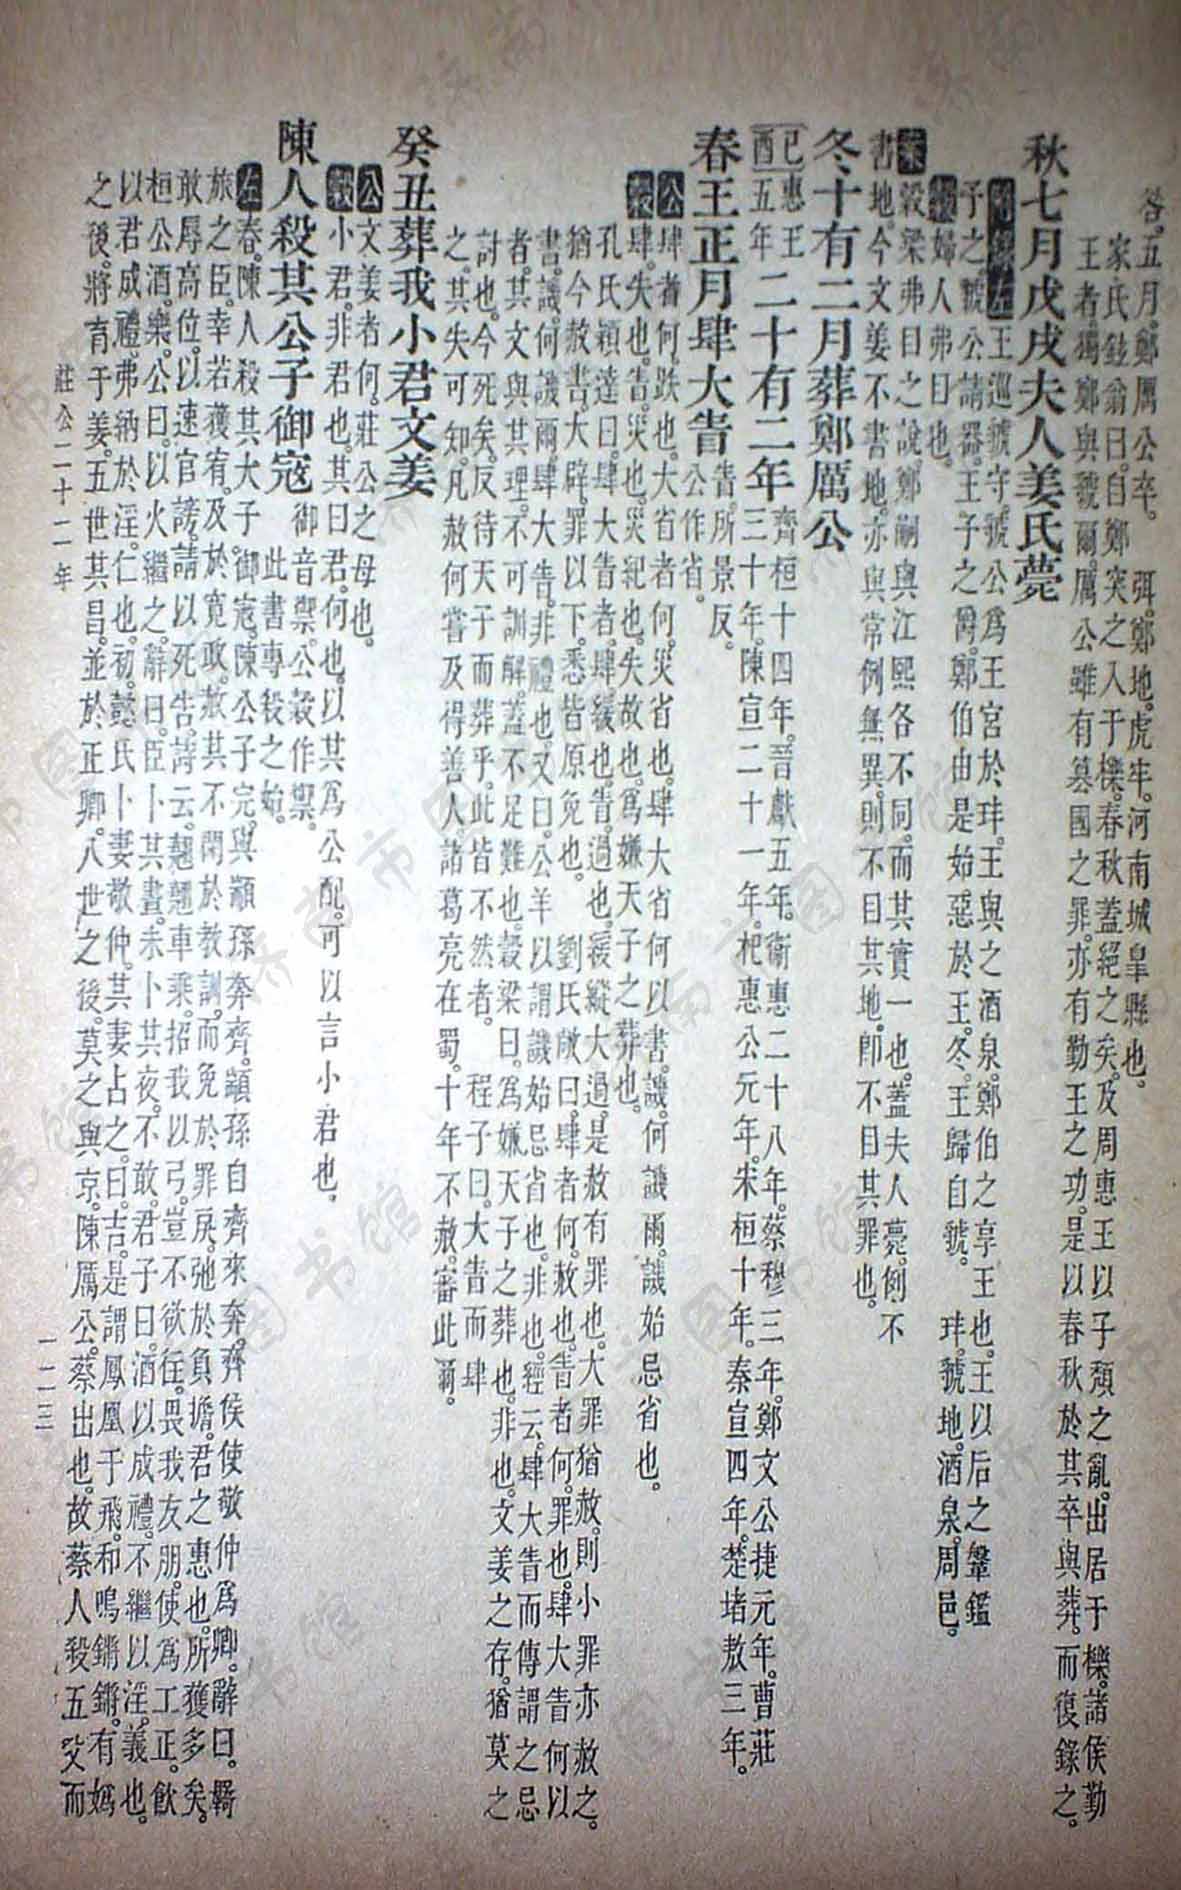 咎五月鄭厲公卒。 弭鄭地。虎牢。河南城皐縣也。
家氏鉉翁曰。自鄭突之入于櫟。春秋蓋絕之矣。及周惠王以子頹之亂。出居于櫟。諸侯勤
王者。獨鄭與虢爾。厲公雖有篡國之罪。亦有勤王之功。是以春秋於其卒與葬。而復錄之。
秋七月戊戌夫人姜氏薨
附錄左王巡虢守。虢公爲王宮於玤。王與之酒泉。鄭伯之享王也。王以后之鞶鑑
予之。虢公請器。王予之爵。鄭伯由是始惡於王。冬。王歸自虢。 玤。虢地。酒泉。周邑。
穀婦人弗目也。
案穀梁弗目之說。鄭嗣與江熙各不同。而其實一也。蓋夫人薨。例不
書地。今文姜不書地。亦與常例無異。則不目其地。卽不目其罪也。
冬十有二月葬鄭厲公
己酉 惠王五年 二十有二年 齊桓十四年。晉獻五年。衞惠二十八年。蔡穆三年。鄭文公捷元年。曹莊
三十年。陳宣二十一年。杞惠公元年。宋桓十年。秦宣四年。楚堵敖三年。
春王正月肆大眚 眚。所景反。公作省。
公肆者何。跌也。大省者何。災省也。肆大省何以書。譏。何譏爾。譏始忌省也。
穀肆。失也。眚。災也。災紀也。失故也。爲嫌天子之葬也。
孔氏穎達曰。肆大眚者。肆緩也。眚。過也。緩縱大過。是赦有罪也。大罪猶赦。則小罪亦赦之。
猶今赦書。大辟罪以下。悉皆原免也。 劉氏敞曰。肆者何。赦也。眚者何。罪也。肆大眚何以
書。譏。何譏爾。肆大眚。非禮也。又曰。公羊以謂譏始忌省也。非也。經云。肆大眚而傳謂之忌
者。其文與其理。不可訓解。蓋不足難也。穀梁曰。爲嫌天子之葬也。非也。文姜之存。猶莫之
討也。今死矣。反待天子而葬乎。此皆不然者。 程子曰。大眚而肆
之。其失可知。凡赦何嘗及得善人。諸葛亮在蜀。十年不赦。審此爾。
癸丑葬我小君文姜
公文姜者何。莊公之母也。
穀小君。非君也。其曰君。何也。以其爲公配。可以言小君也。
陳人殺其公子御寇 御音禦。公穀作禦。此書專殺之始。
左春。陳人殺其大子御寇。陳公子完。與顓孫奔齊。顓孫自齊來奔。齊侯使敬仲爲卿。辭曰。羇
旅之臣。幸若獲宥。及於寬政。赦其不閑於教訓。而免於罪戾。弛於負擔。君之惠也。所獲多矣。
敢辱高位。以速官謗。請以死告。詩云。翹翹車乘。招我以弓。豈不欲往。畏我友朋。使爲工正。飮
桓公酒。樂。公曰。以火繼之。辭曰。臣卜其晝。未卜其夜。不敢。君子曰。酒以成禮。不繼以淫。義也。
以君成禮。弗納於淫。仁也。初。懿氏卜妻敬仲。其妻占之。曰。吉。是謂鳳凰于飛。和鳴鏘鏘。有嬀
之後。將育于姜。五世其昌。並於正卿。八世之後。莫之與京。陳厲公。蔡出也。故蔡人殺五父而
莊公二十二年
一一三